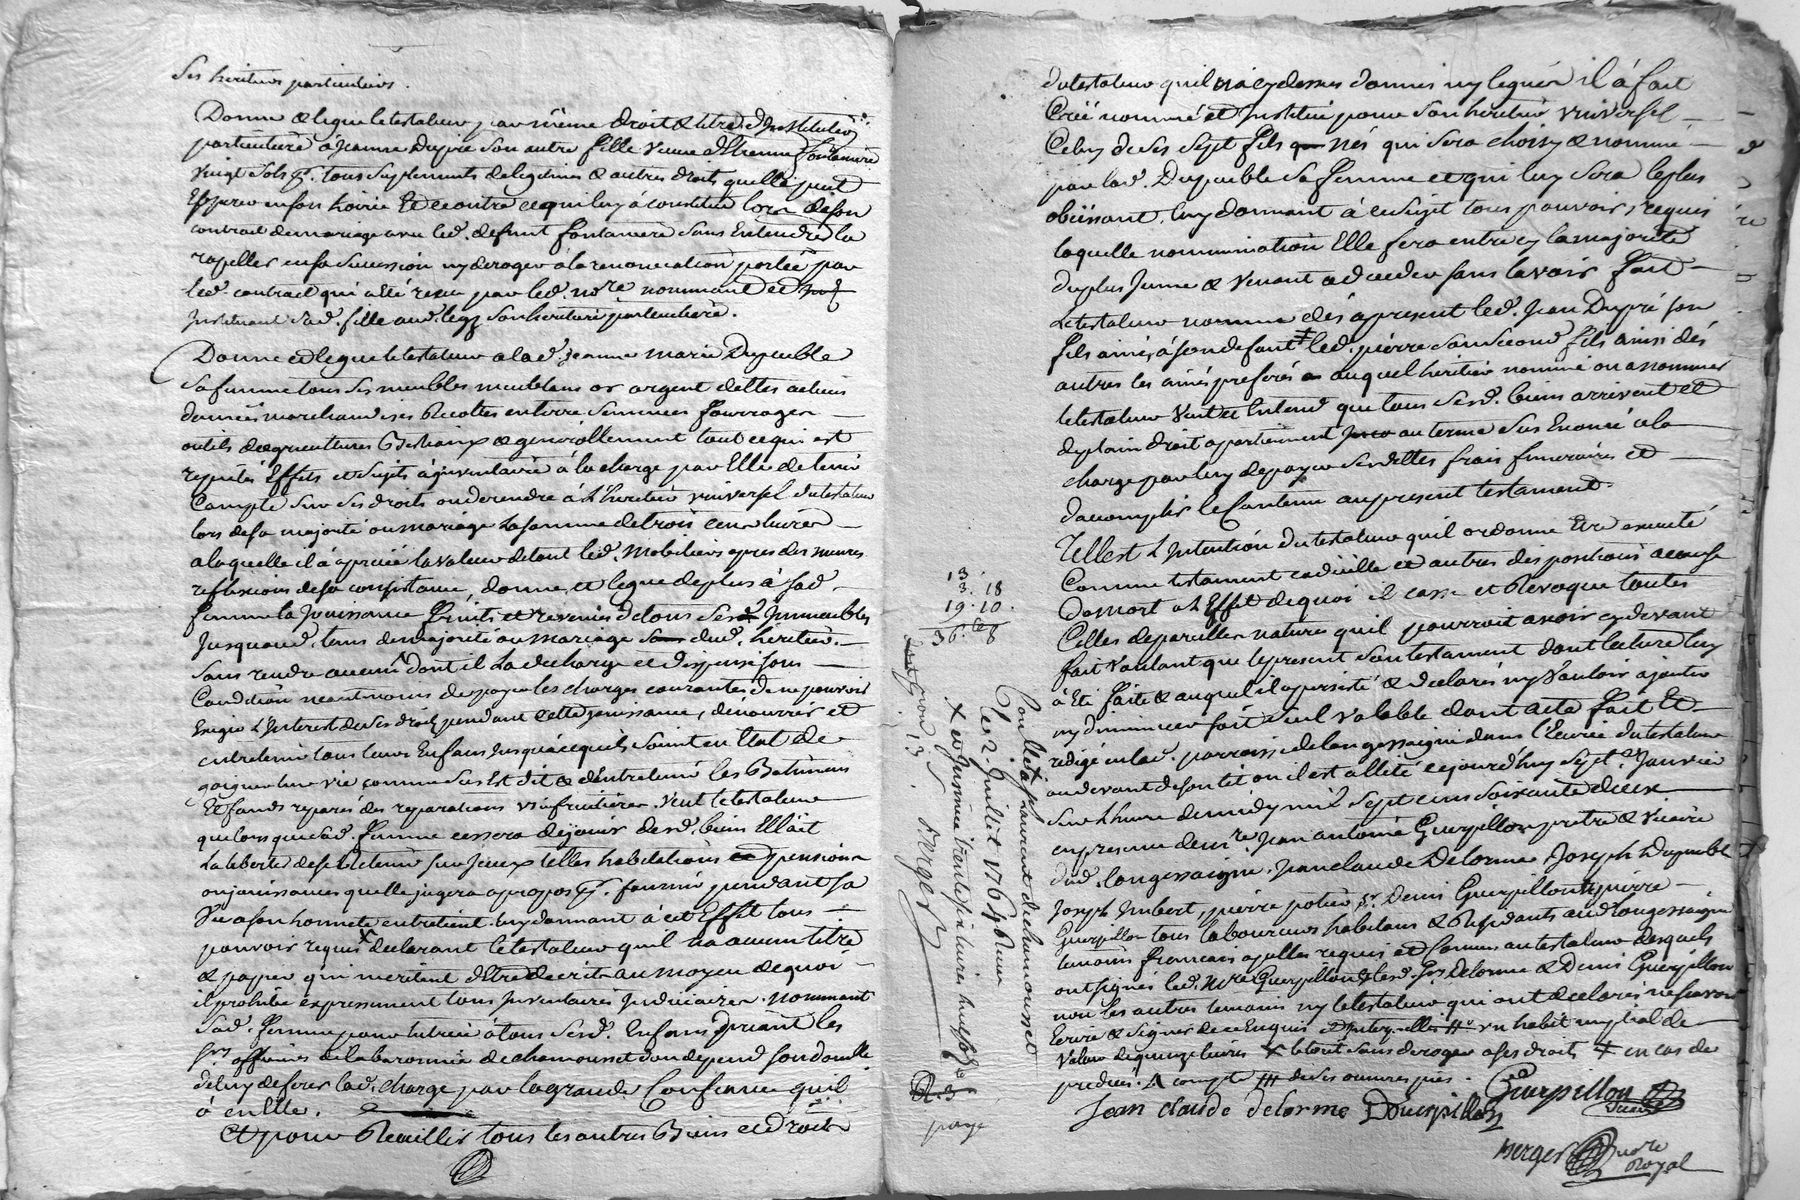 ses heritiers particuliers.
Donne & legue le testateur par même droit & titre d'Institution
particuliere à Jeanne Dupré son autre fille veuve d'Etienne fontaniere
vingt sols pr. tous suplements de legitimes & autres droits quelle peut
Esperer en son hoirie Et ce outre ce qui luy à constitué lors de son
contrat de mariage avec led. defunt fontaniere sans Entendre la
rapeller en sa succession ny deroger à la renonciation portée par
led. contract qui a eté receu par led. nore nommant et
Instituant sad. fille aud. legs son heritiere particuliere.
Donne et legue le testateur a lad. Jeanne marie Dupeuble
sa femme tous ses meubles meublans or argent dettes actives
denrées marchandises Recoltes en terre semences fourrages
outils d'agricultures Bestiaux & generallement tout ce qui est
reputés Effets et sujets à inventaire à la charge par Elle de tenir
Compte sur ses droits ou de rendre à L'heritier universel du testateur
lors de sa majorité ou mariage La somme de trois cens livres
a laquelle il à aprecié la valeur de tout led. Mobiliers apres des meures
reflexions de sa consistance, donne et legue de plus à sad.
femme la Jouissance fruits et revenus de tous sesd. Immeubles
Jusquaud. tems de majorité ou mariage dud. heritier.
sans rendre aucun dont il La decharge et dispense sous
Condition neantmoins de payer les charges courantes de ne pouvoir
Exiger L'Interest de ses droits pendant cette jouissance, de nourrir et
entretenir tous leurs Enfans Jusqua ce quils soient en Etat de
gaigner leur vie comme sus Est dit & d'entretenir les Batimens
Et fonds reparés des reparations usufruitieres. Veut le testateur
que lors que sad. femme cessera de jouir desd. biens Elle ait
La liberté de se retenir sur Iceux telles habitations pension
ou jouissances quelle jugera apropos pr. fournir pendant sa
Vie a son honnete entretient luy donnant à cet Effet tous
pouvoir requis declarant le testateur quil na aucun titre
& papier qui meritent d'Etre decrits au moyen de quoi
il prohibe expressement tous Inventaires Judiciaires. nommant
sad. femme pour tutrice à tous sesd. Enfans priant les
srs officiers de la baronnie de chamousset dou depend son domicille
de luy deferer lad. charge par la grande Confiance quil
à en Elle.
Et pour Recueillir tous les autres Biens et droits
du testateur quil n'a cy dessus donnés ny legués il à fait
Créé nommé et Institué pour son heritier universel
Celuy de ses sept fils nés qui sera choisy & nommé
par lad. Dupeuble sa femme et qui luy sera le plus
obéissant, luy donnant à ce sujet tous pouvoirs requis
laquelle nommination Elle fera entre cy la majorité
du plus Jeune & venant a deceder sans l'avoir fait
Le testateur nomme dés apresent led. Jean Dupré son
fils ainé, à son defaut led. pierre son second fils ainsi des
autres les ainés preferés auquel heritier nommé ou a nommer
le testateur Veut et Entend que tous sesd. biens arrivent et
de plain droit apartiennent au terme sus Enoncé à la
charge par luy de payer ses dettes frais funeraires et
d'accomplir le Contenu au present testament.
Telle est L'Intention du testateur quil ordonne Etre executé
Comme testament codicille et autres dispositions a cause
de mort a L'Effet de quoi il casse et Revoque toutes
Celles de pareilles natures quil pourroit avoir cy devant
fait Voulant que le present son testament dont lecture luy
à Eté faite & auquel il a persisté & declarés ny Vouloir ajouter
ny diminuer soit seul valable dont acte fait Et
redigé en lad. parroisse de longessaigne dans l'Ecurie du testateur
au devant de son lit ou il est allité cejourd'huy sept Janvier
sur L'heure de midy mil sept cens soixante deux
en presence de mre Jean antoine Guerpillon pretre & vicaire
dud. longessaigne, Jean claude Delorme, Joseph Dupeuble
Joseph Imbert, pierre potier, sr. Denis Guerpillon & pierre
Guerpillon tous laboureurs habitans & Residants aud. longessaigne
temoins francais apellés requis et connus au testateur desquels
ont signés led. Mre Guerpillon & led. Jn. Delorme & Denis Guerpillon
non les autres temoins ny le testateur qui ont declarés ne scavoir
Ecrire & signer de ce Enquis un habit nuptial de
Valeur de quinze livres + le tout sans deroger a ses droits + en cas de
predecés. A compte de ses
Guerpillon
Jean claude delorme DGuerpillon
Berger nore
Royal
13.
3. 18
19. 10.
36. 8
Controllé à St Laurent de chamousset
le 2. Juillet 1764. Reçu
trente six livres huit sols
Berger
page